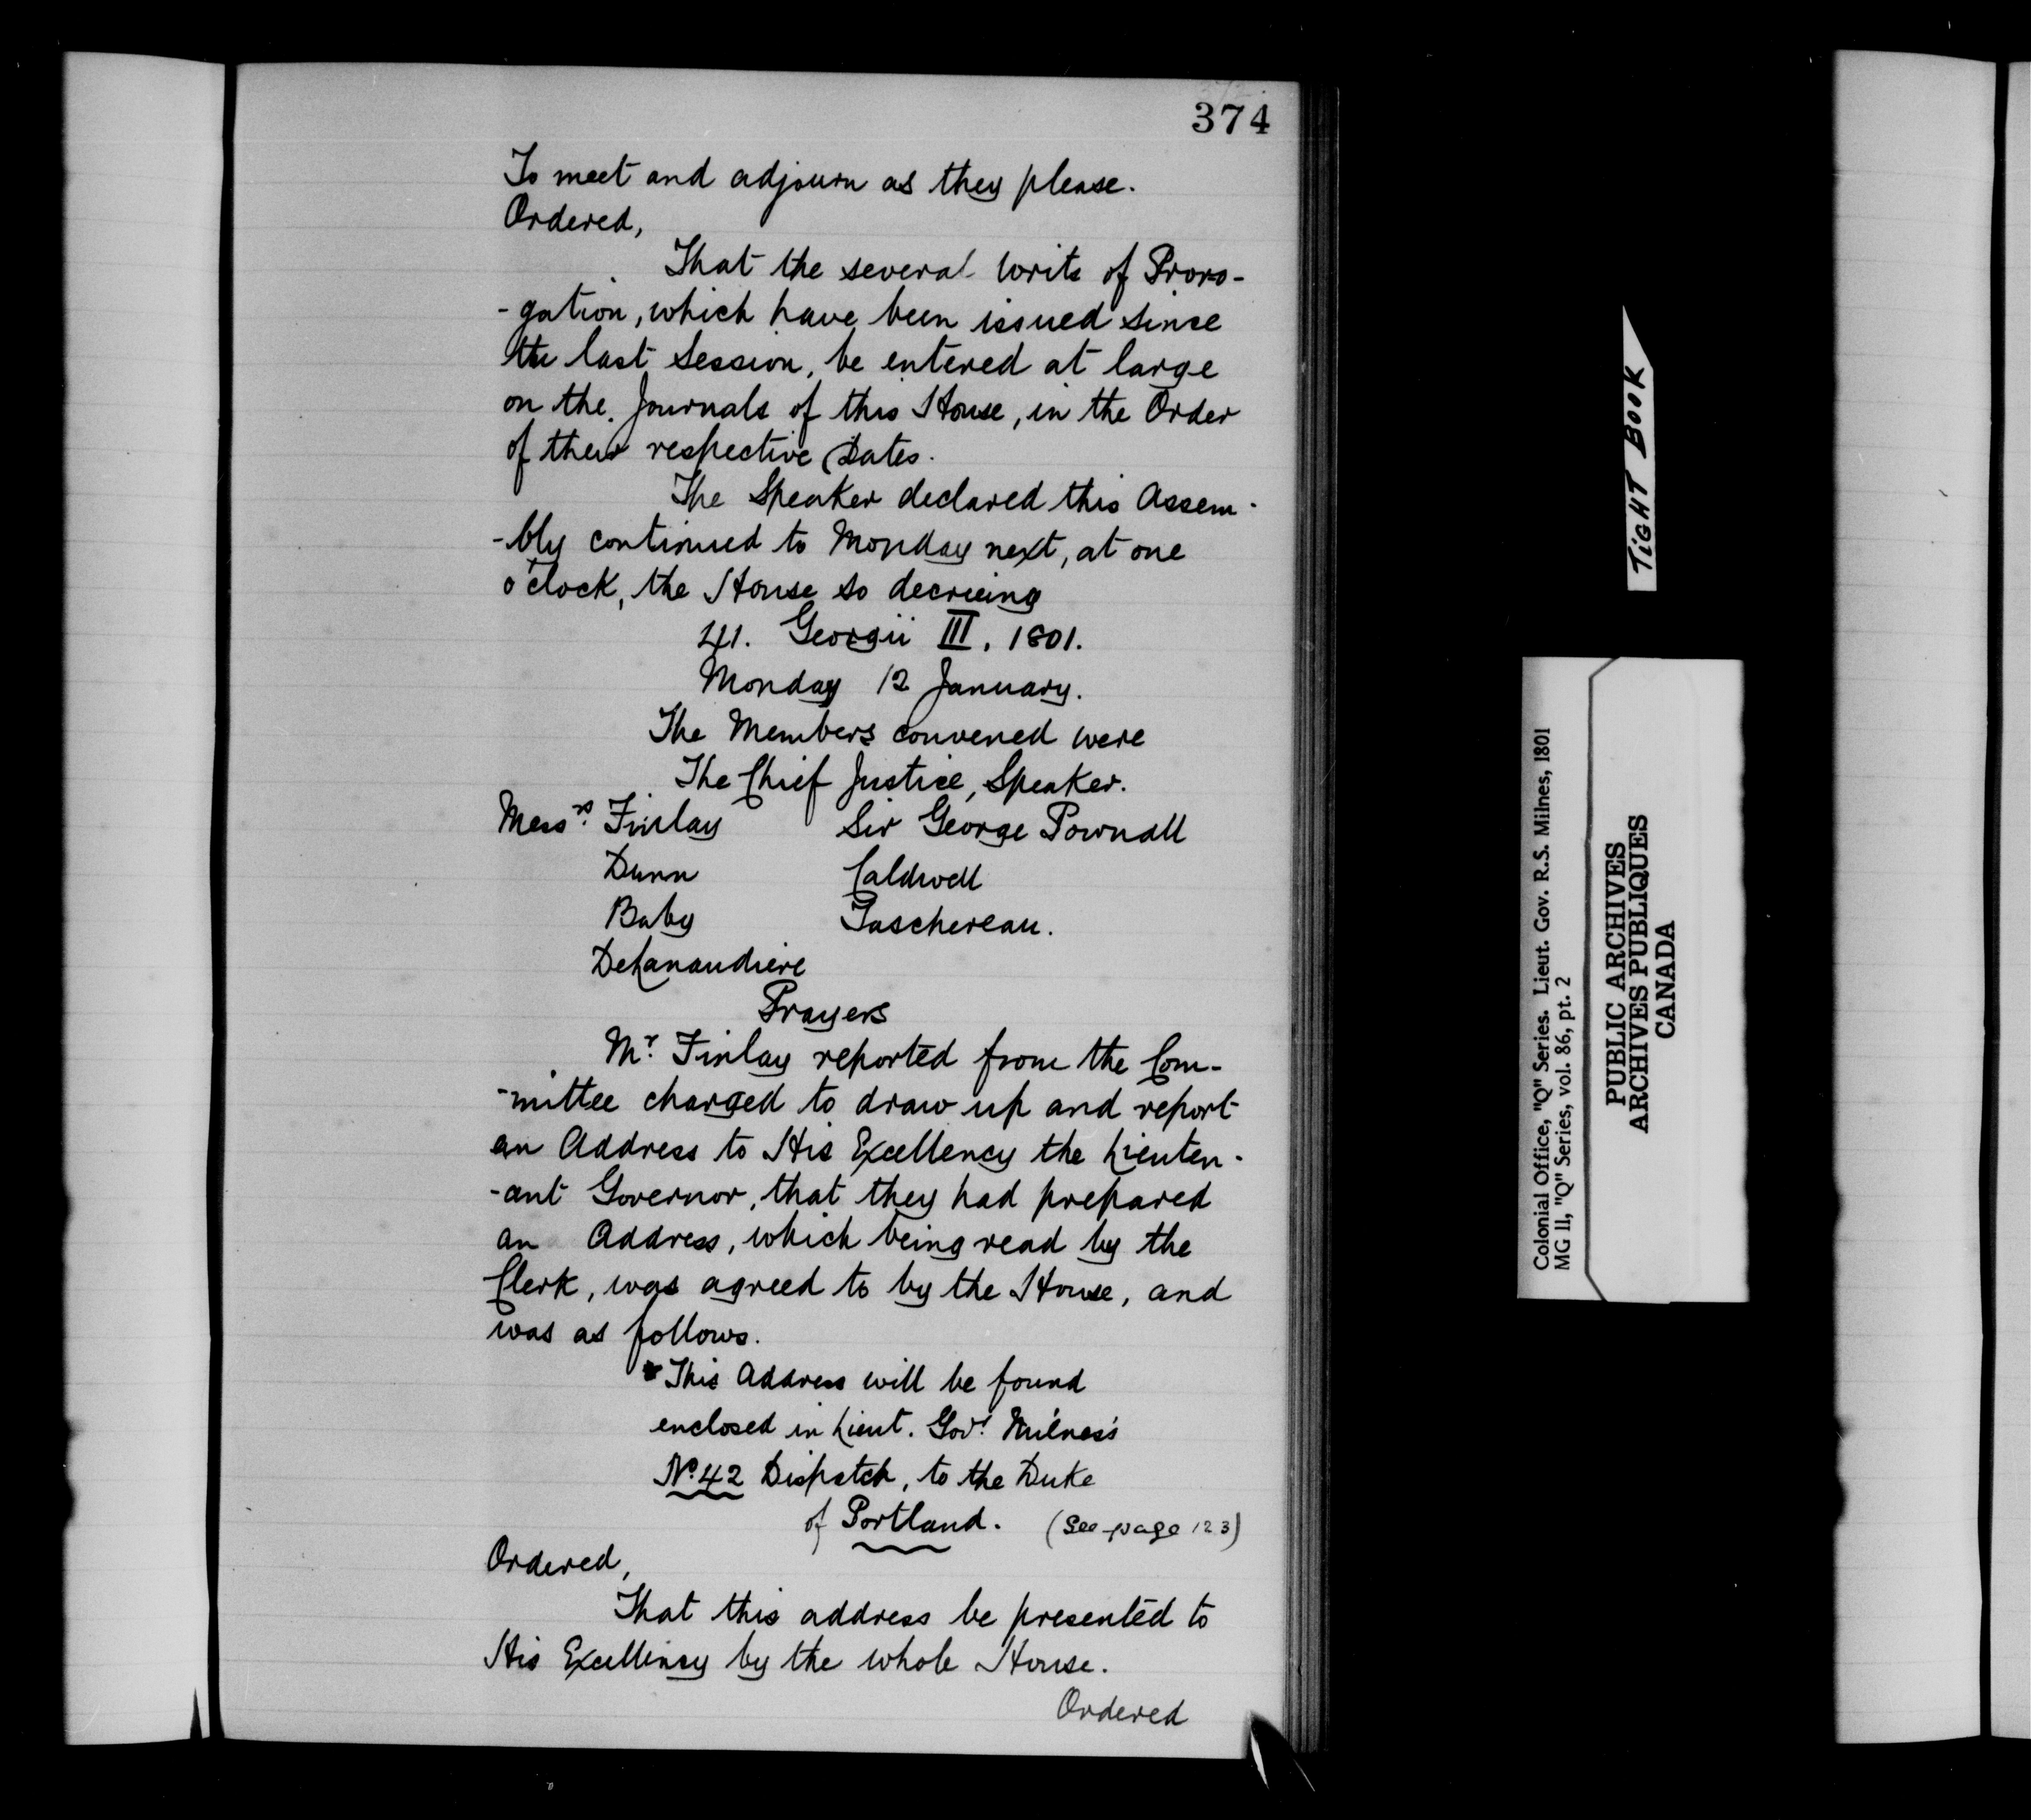 374
To meet and adjourn as they please.
Ordered,
That the several writs of Proro-
-gation, which have been issued since
the last Session, be entered at large
on the Journals of this House, in the Order
of their respective Dates.
The Speaker declared this Assem-
-bly continued to Monday next, at one
o'clock, the House so decreeing
41. Georgii III, 1801.
Monday 12 January.
The Members convened were
The Chief Justice, Speaker.
Messrs. Finlay Sir George Pownall
Dunn Caldwell
Baby Taschereau.
DeLanaudiere
Prayers
Mr. Finlay reported from the Com-
-mittee charged to draw up and report
an Address to His Excellency the Lieuten-
-ant Governor, that they had prepared
an Address, which being read by the
Clerk, was agreed to by the House, and
was as follows.
* This Address will be found
enclosed in Lieut. Govr. Milnes's
No. 42 Dispatch, to the Duke
of Portland. (See page 123)
Ordered,
That this address be presented to
His Excellency by the whole House.
Ordered
TIGHT BOOK
Colonial Office, "Q" Series. Lieut. Gov. R.S. Milnes, 1801
MG 11, "Q" Series, vol. 86, pt. 2
PUBLIC ARCHIVES
ARCHIVES PUBLIQUES
CANADA